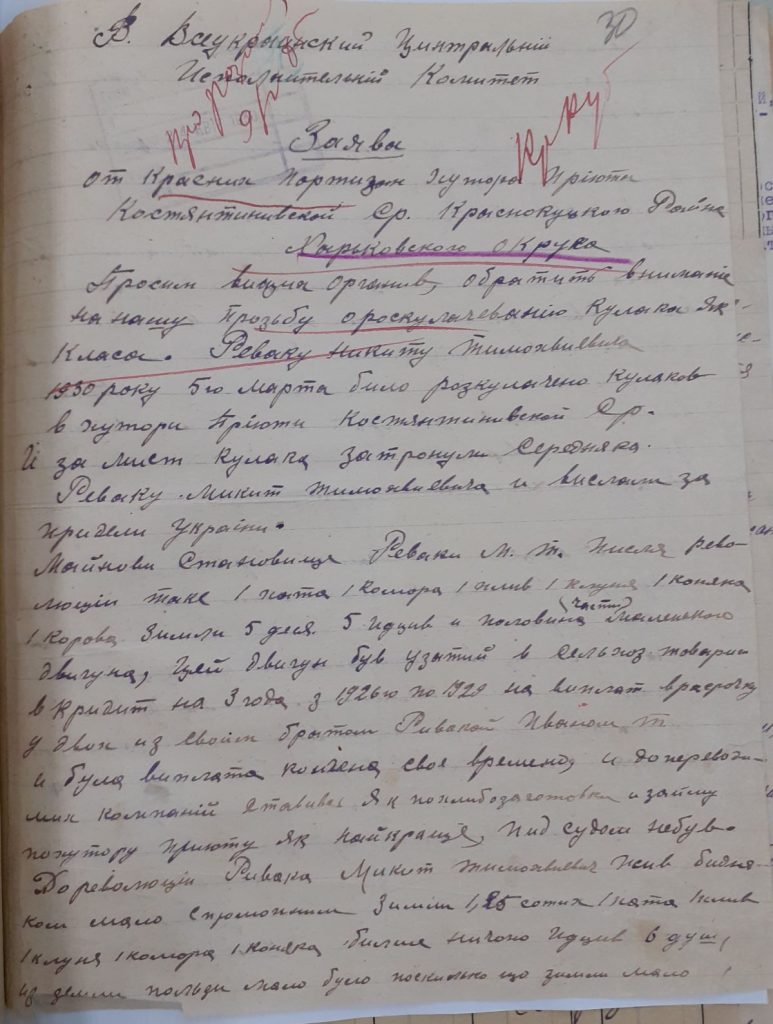 30
В. Всеукраїнский Центральній
Исполнительній Комитет
про розкур
9/
Заява
от Красних Портизан Хутора Пріюти
Костянтинивской Ср. Краснокуцкого Района
Харьковского округа
Просим визша Органив, обратить внимание
на нашу прозьбу о роскулачеванію Кулака як
Класа. Реваку Никиту Тимохвиевича
1930 року 5го Марта било розкулачено Кулаков
в хутори Пріюти Костянтинивской Ср.
И за мист Кулака затронули Середняка.
Реваку Микит Тимохвиевича и вислали за
причели України.
Майнови Становище Реваки М. Т. писля рево-
люціи таке 1 хата 1 комора 1 хлив 1 клуня 1 коняка
1 корова Зимли 5 деся. 5 идцив и половина (части) маленкого
двигуна, цей двигун був узятий в сельхоз товари
в кридит на 3 года з 1926го по 1929 на виплат врасрочку
у двох из своїм братом Ривакой Иваном Т.
и була виплата кончена свое времено, и до переводи-
мих компаній ставивсь як по хлибозаготовки и займу
по хутору Приюту як найкраще, пид судом небув.
До революціи Ривака Микит Тимохвиевич жив бидня-
ком мало спроможним Зимли 1,25 сотих 1 хата 1 хлив
1 клуня 1 комора 1 коняка билше ничого идцив 6 душ,
из земли пользи мало було поскилько що зимли мало